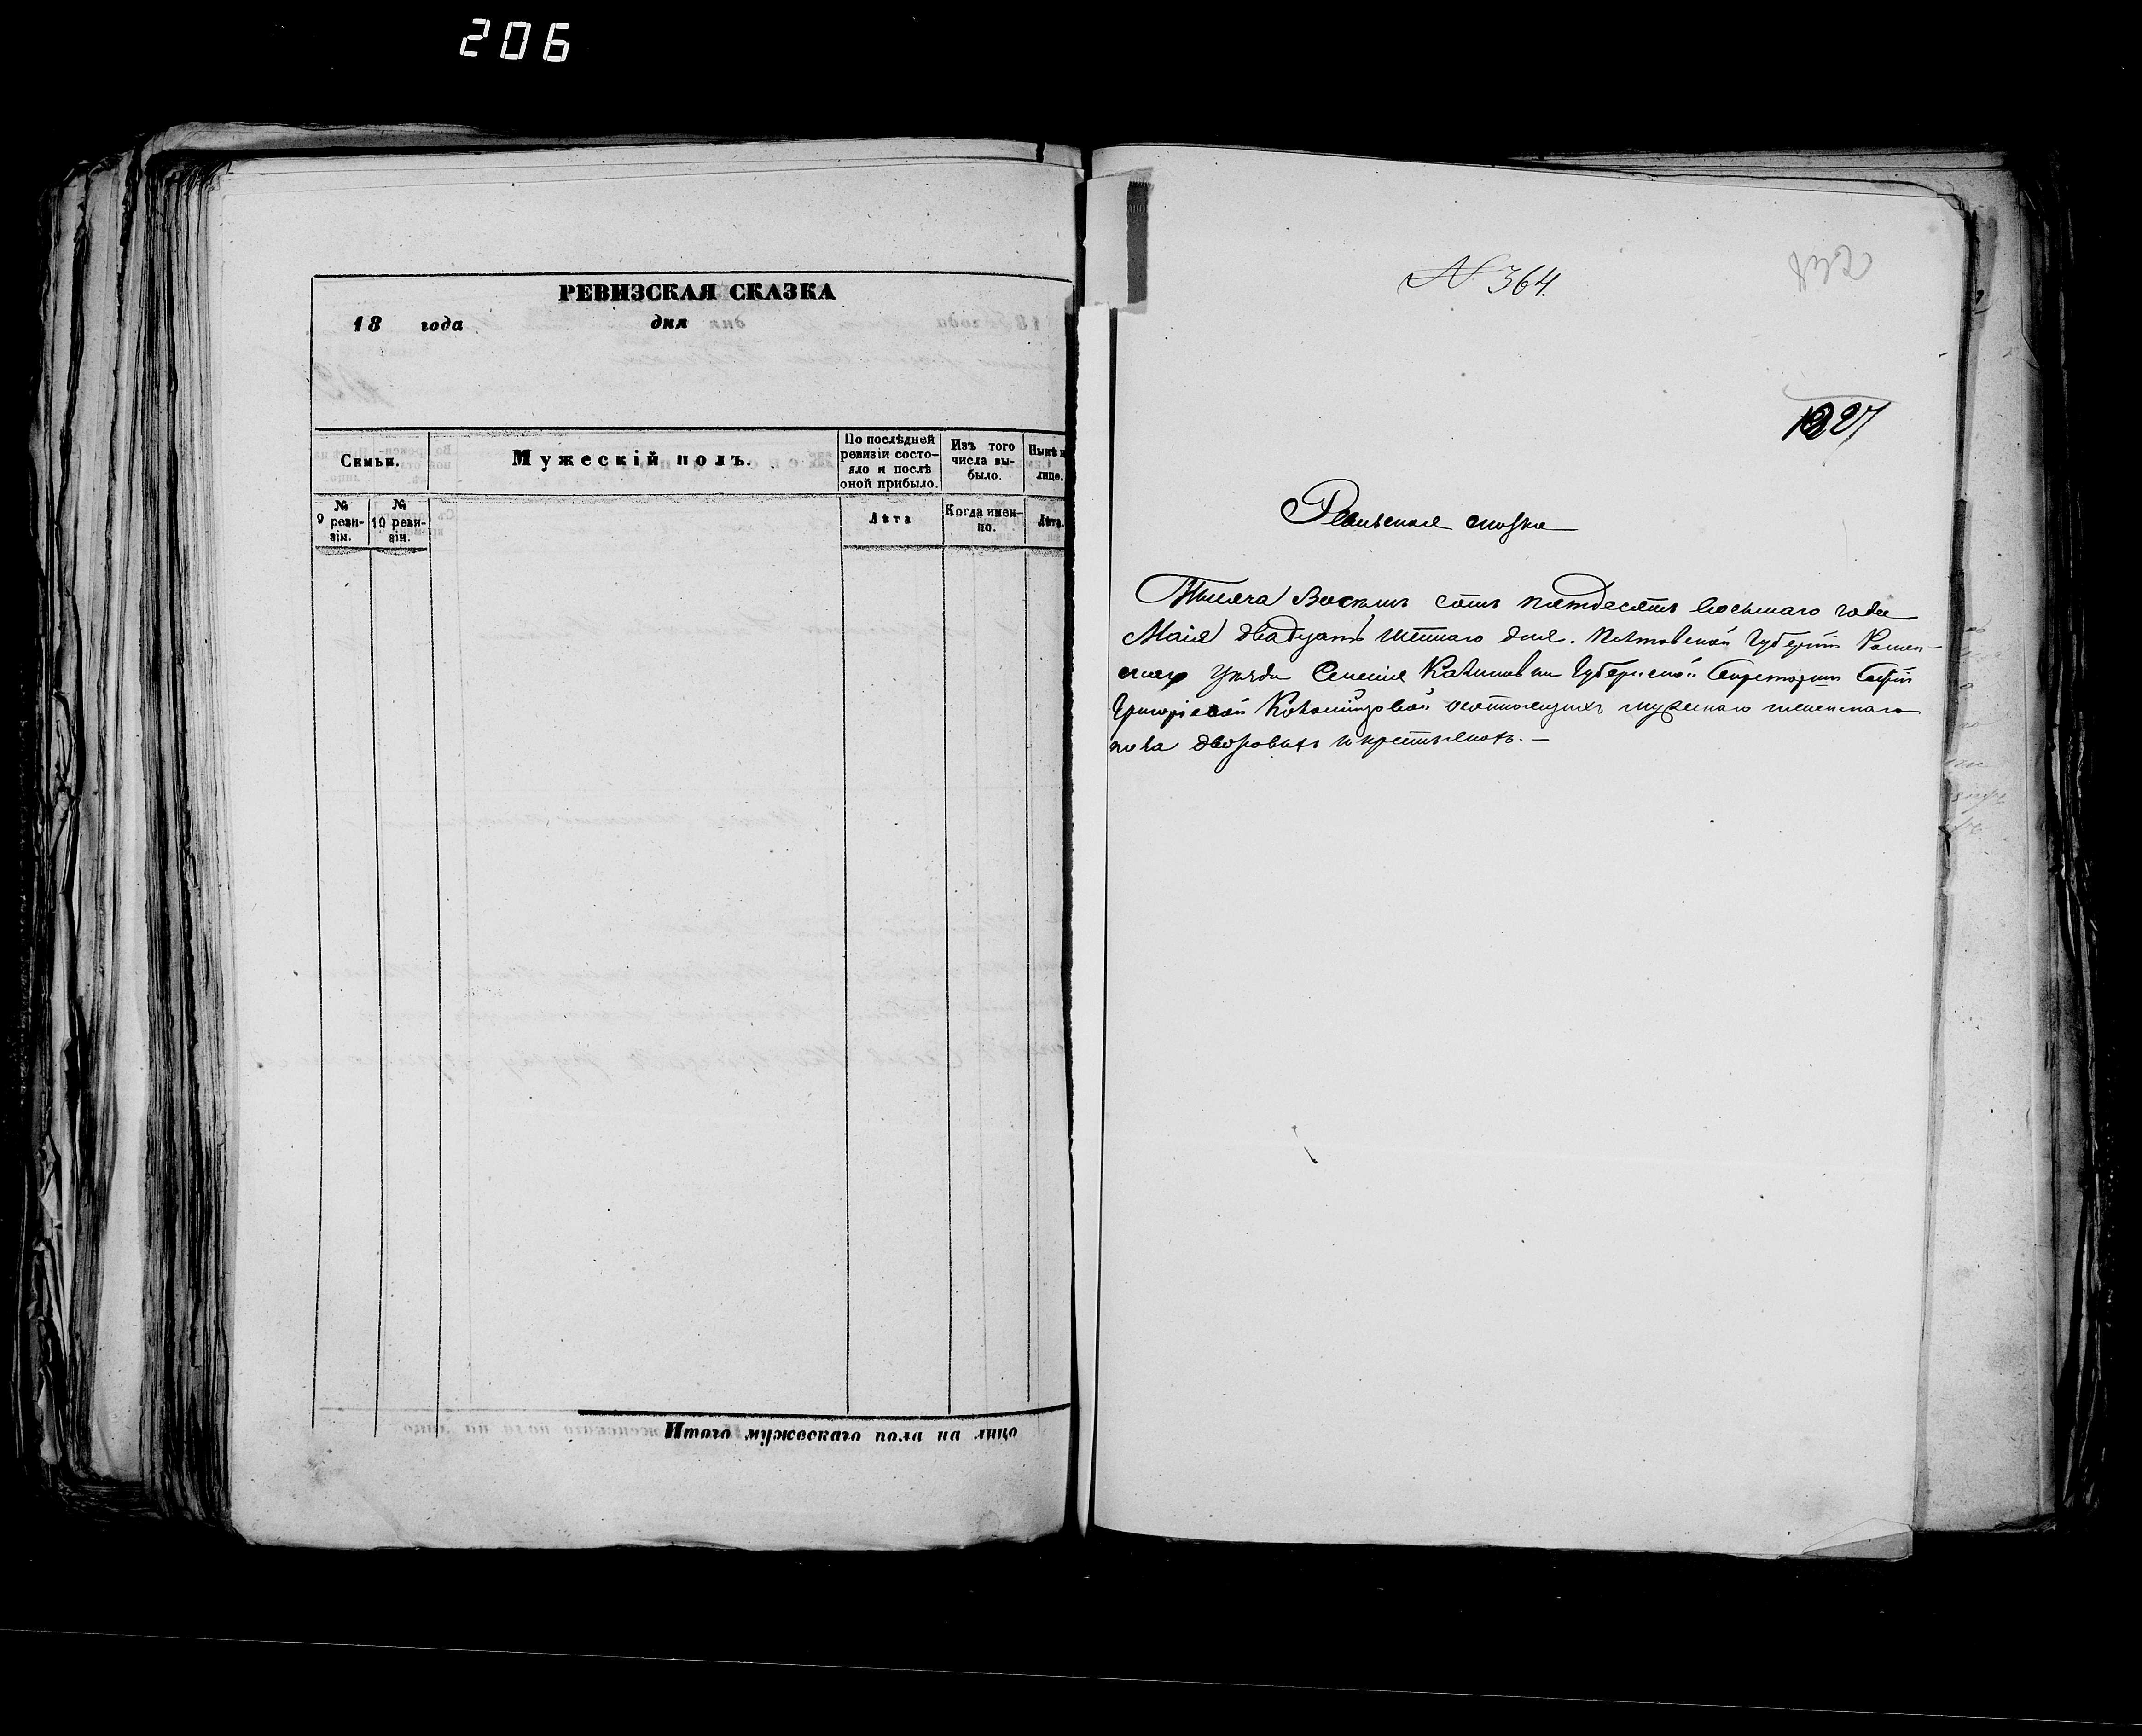 206
РЕВИЗСКАЯ СКАЗКА
18 года дня
Семьи.
Мужескій полъ.
По послѣдней
ревизіи состо-
яло и послѣ
оной прибыло.
Изъ того
числа вы-
было.
Нынѣ
лицо.
№
9 реви-
зіи.
№
10 реви-
зіи.
Лѣта
Когда имен-
но.
Лѣта.
Итого мужескаго пола на лицо
N 364.
132
Ревизская сказка
Тысяча Восемь сотъ пятдесятъ восьмаго года
Маія двадцать дня. Полтавской Губерніи Ромен-
скаго уѣзда Селенія Калиновки Губернской Секретарши Софіи
Григоріевой Коломійцовой о состоящихъ мужескаго и женскаго
пола дворовыхъ и крестьянахъ. —